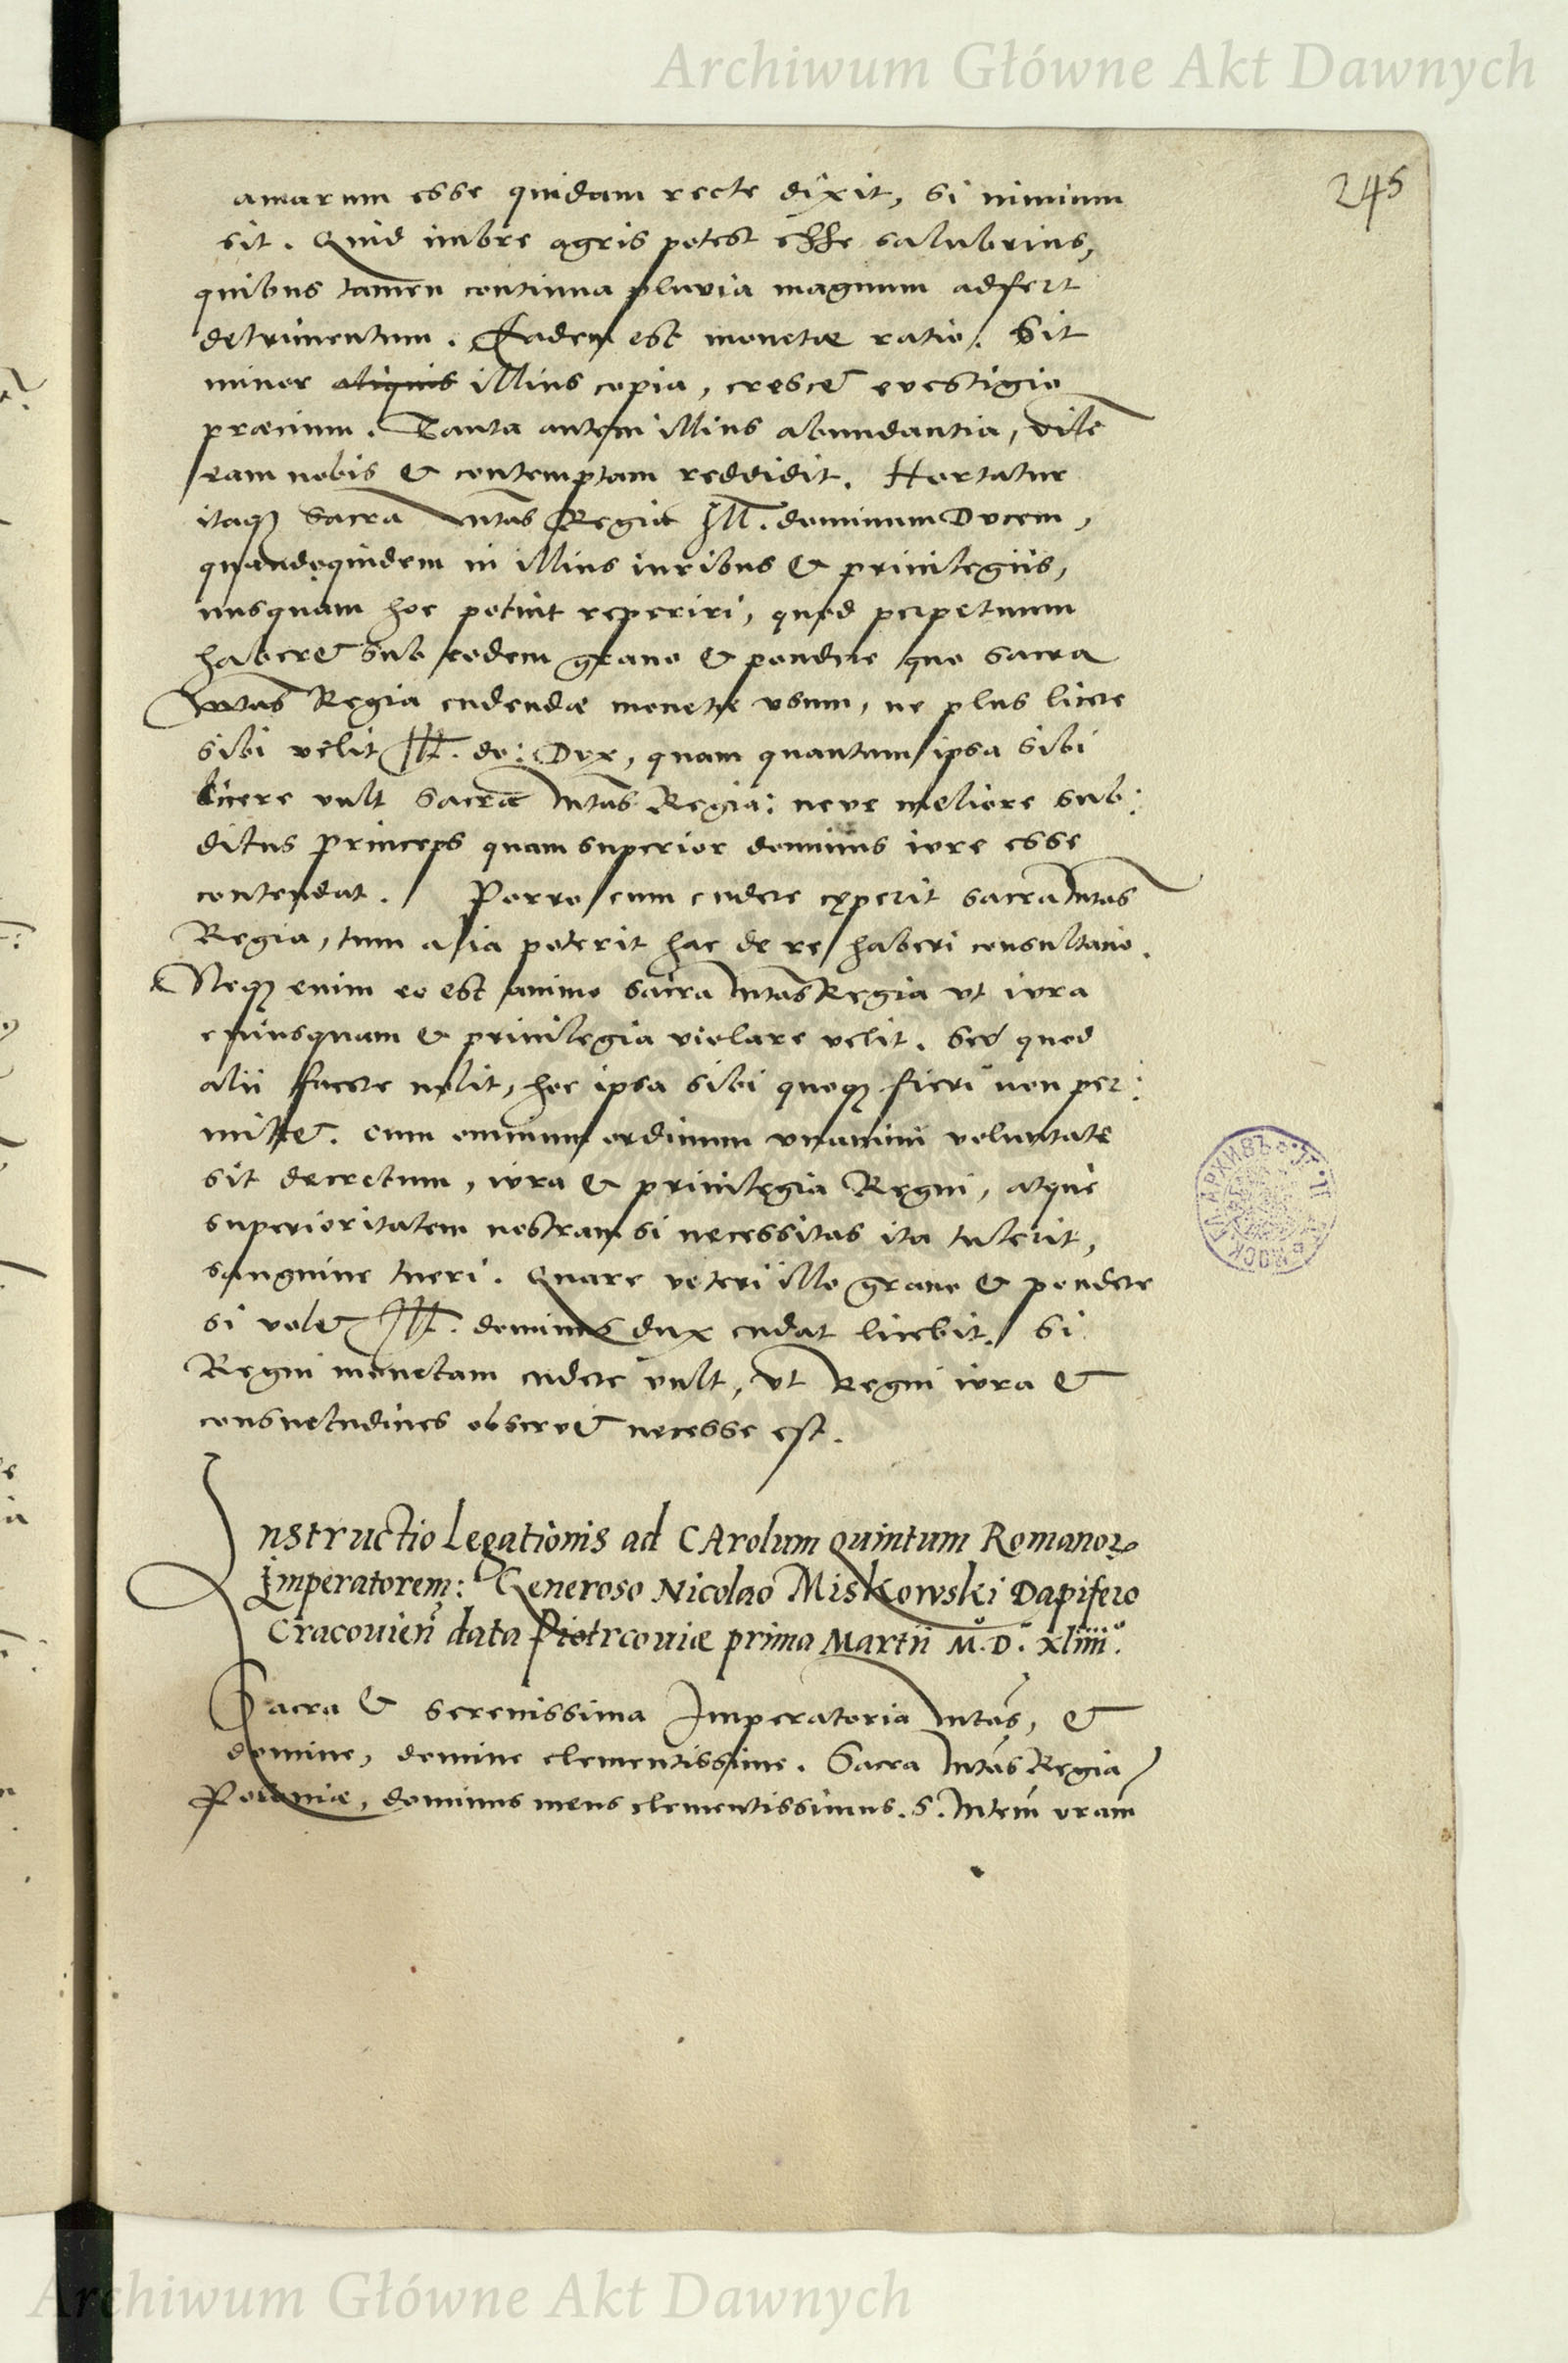 Archiwum Główne Akt Dawnych
245
amarum esse quidam recte dixit, si nimium
sit. Quid imbre agris potest esse salubrius,
quibus tamen continua pluvia magnum adfert
detrimentum. Eadem est monetæ ratio. Sit
minor aliquis illius copia, crescet evestigio
præcium. Tanta autem illius abundantia, vile
eam nobis & contemptam reddidit. Hortatur
itaq sacra Mtas Regia Ill. dominum Ducem,
quandoquidem in illius iuribus & privilegiis,
nusquam hoc potuit reperiri, quod perpetuum
haberet sub eodem grano & pondere quo sacra
Mtas Regia cudendæ monetæ usum, ne plus licere
sibi velit Ill. do: Dux, quam quantum ipsa sibi
licere vult sacra Mtas Regia: neve meliore sub:
ditus princeps quam superior dominus iure esse
contendat. Porro cum cudere cęperit sacra Mtas
Regia, tum alia poterit hac de re haberi consultatio.
Neq enim eo est animo sacra Mtas Regia ut iura
cuiusquam & privilegia violare velit. Sed quod
alii facere nolit, hoc ipsa sibi quoq fieri non per:
mittet. cum omnium ordinum unanimi voluntate
sit decretum, iura & privilegia Regni, atque
superioritatem nostram si necessitas ita tulerit,
sanguine tueri. Quare veteri illo grano & pondere
si volet Ill. dominus dux cudat licebit. Si
Regni monetam cudere vult, ut Regni iura &
consuetudines observet necesse est.
Instructio Legationis ad CArolum quintum Romanoꝝ
Imperatorem: Generoso Nicolao Miskowski Dapifero
Cracovien̄ data Piotrcoviæ prima Martii M.D. xliiii.
Sacra & serenissima Imperatoria Mtas, &
domine, domine clementissime. Sacra Mtas Regia
Poloniæ, dominus meus clementissimus. S. Mtem vram
Archiwum Główne Akt Dawnych